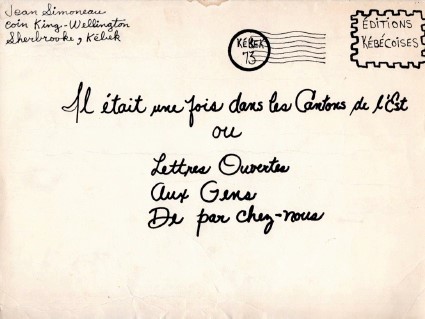 Jean Simoneau
coin King-Wellington
Sherbrooke, Kébek
KÉBEK
73
ÉDITIONS
KÉBÉCOISES
Il était une fois dans les Cantons de l'Est
ou
Lettres Ouvertes
Aux Gens
De par chez-nous